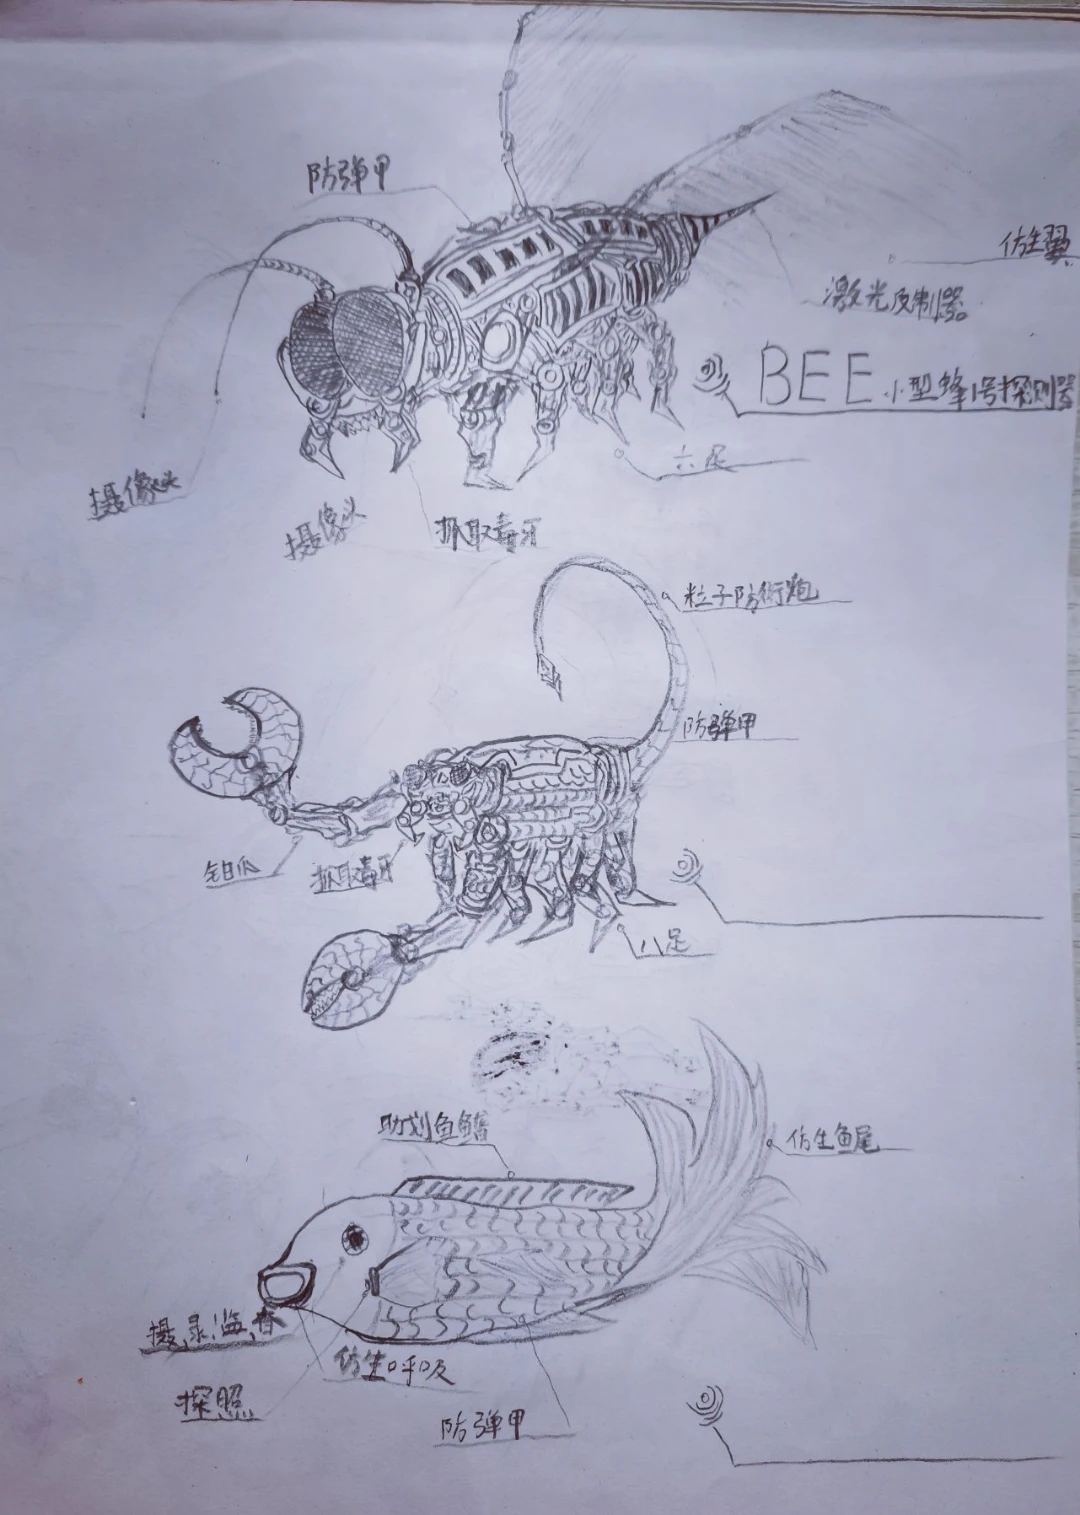 防弹甲
仿生翼
激光反制器
BEE 小型蜂1号探测器
六足
摄像头
摄像头
抓取毒牙
粒子防御炮
防弹甲
钳爪
抓取毒牙
八足
助划鱼鳍
仿生鱼尾
摄,录,监,看
仿生呼吸
探照
防弹甲